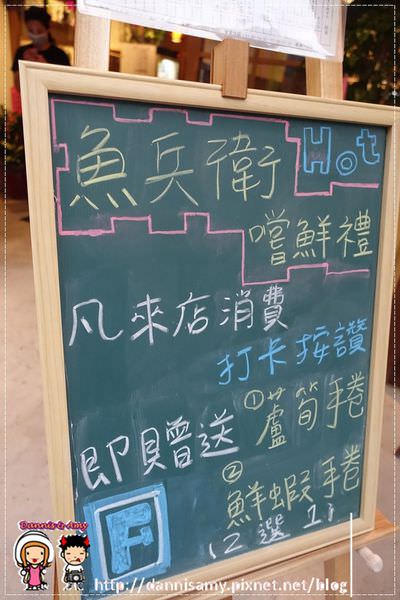 魚兵衛 Hot
嚐鮮禮
凡來店消費
打卡按讚
即贈送
①蘆筍手捲
②鮮蝦手捲
(2選1)
F
Dannis & Amy
http://dannisamy.pixnet.net/blog